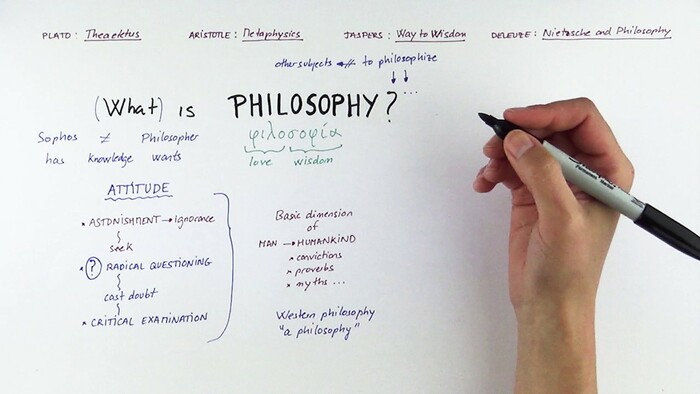 PLATO: Theaetetus ARISTOTLE: Metaphysics JASPERS: Way to Wisdom DELEUZE: Nietzsche and Philosophy
other subjects to philosophize
(What) is PHILOSOPHY?
...
Sophos ≠ Philosopher
has knowledge wants
φιλοσοφία
love wisdom
ATTITUDE
* ASTONISHMENT → Ignorance
seek
* ? RADICAL QUESTIONING
cast doubt
* CRITICAL EXAMINATION
Basic dimension
of
MAN → HUMANKIND
* convictions
* proverbs
* myths ...
Western philosophy
"a philosophy"